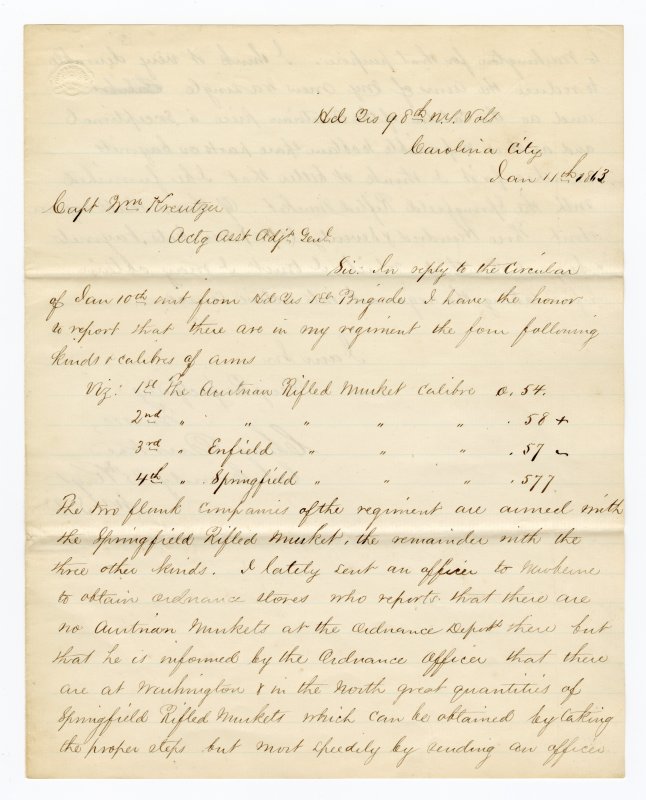 Hd Qrs 98th N.Y. Vols
Carolina City
Jan 11th 1863
Capt Wm Kreutzer
Actg Asst Adjt Genl
Sir: In reply to the Circular
of Jan 10th inst from Hd Qrs 1st Brigade I have the honor
to report that there are in my regiment the four following
kinds & calibres of arms
Viz: 1st The Austrian Rifled Musket Calibre 0.54.
2nd " " " " " .58 +
3rd " Enfield " " " .57 ~
4th " Springfield " " " .577
The two flank companies of the regiment are armed with
the Springfield Rifled Musket, the remainder with the
three other kinds. I lately sent an officer to Newberne
to obtain ordnance stores who reports that there are
no Austrian Muskets at the Ordnance Depot there but
that he is informed by the Ordnance Officer that there
are at Washington & in the North great quantities of
Springfield Rifled Muskets which can be obtained by taking
the proper steps but most speedily by sending an officer